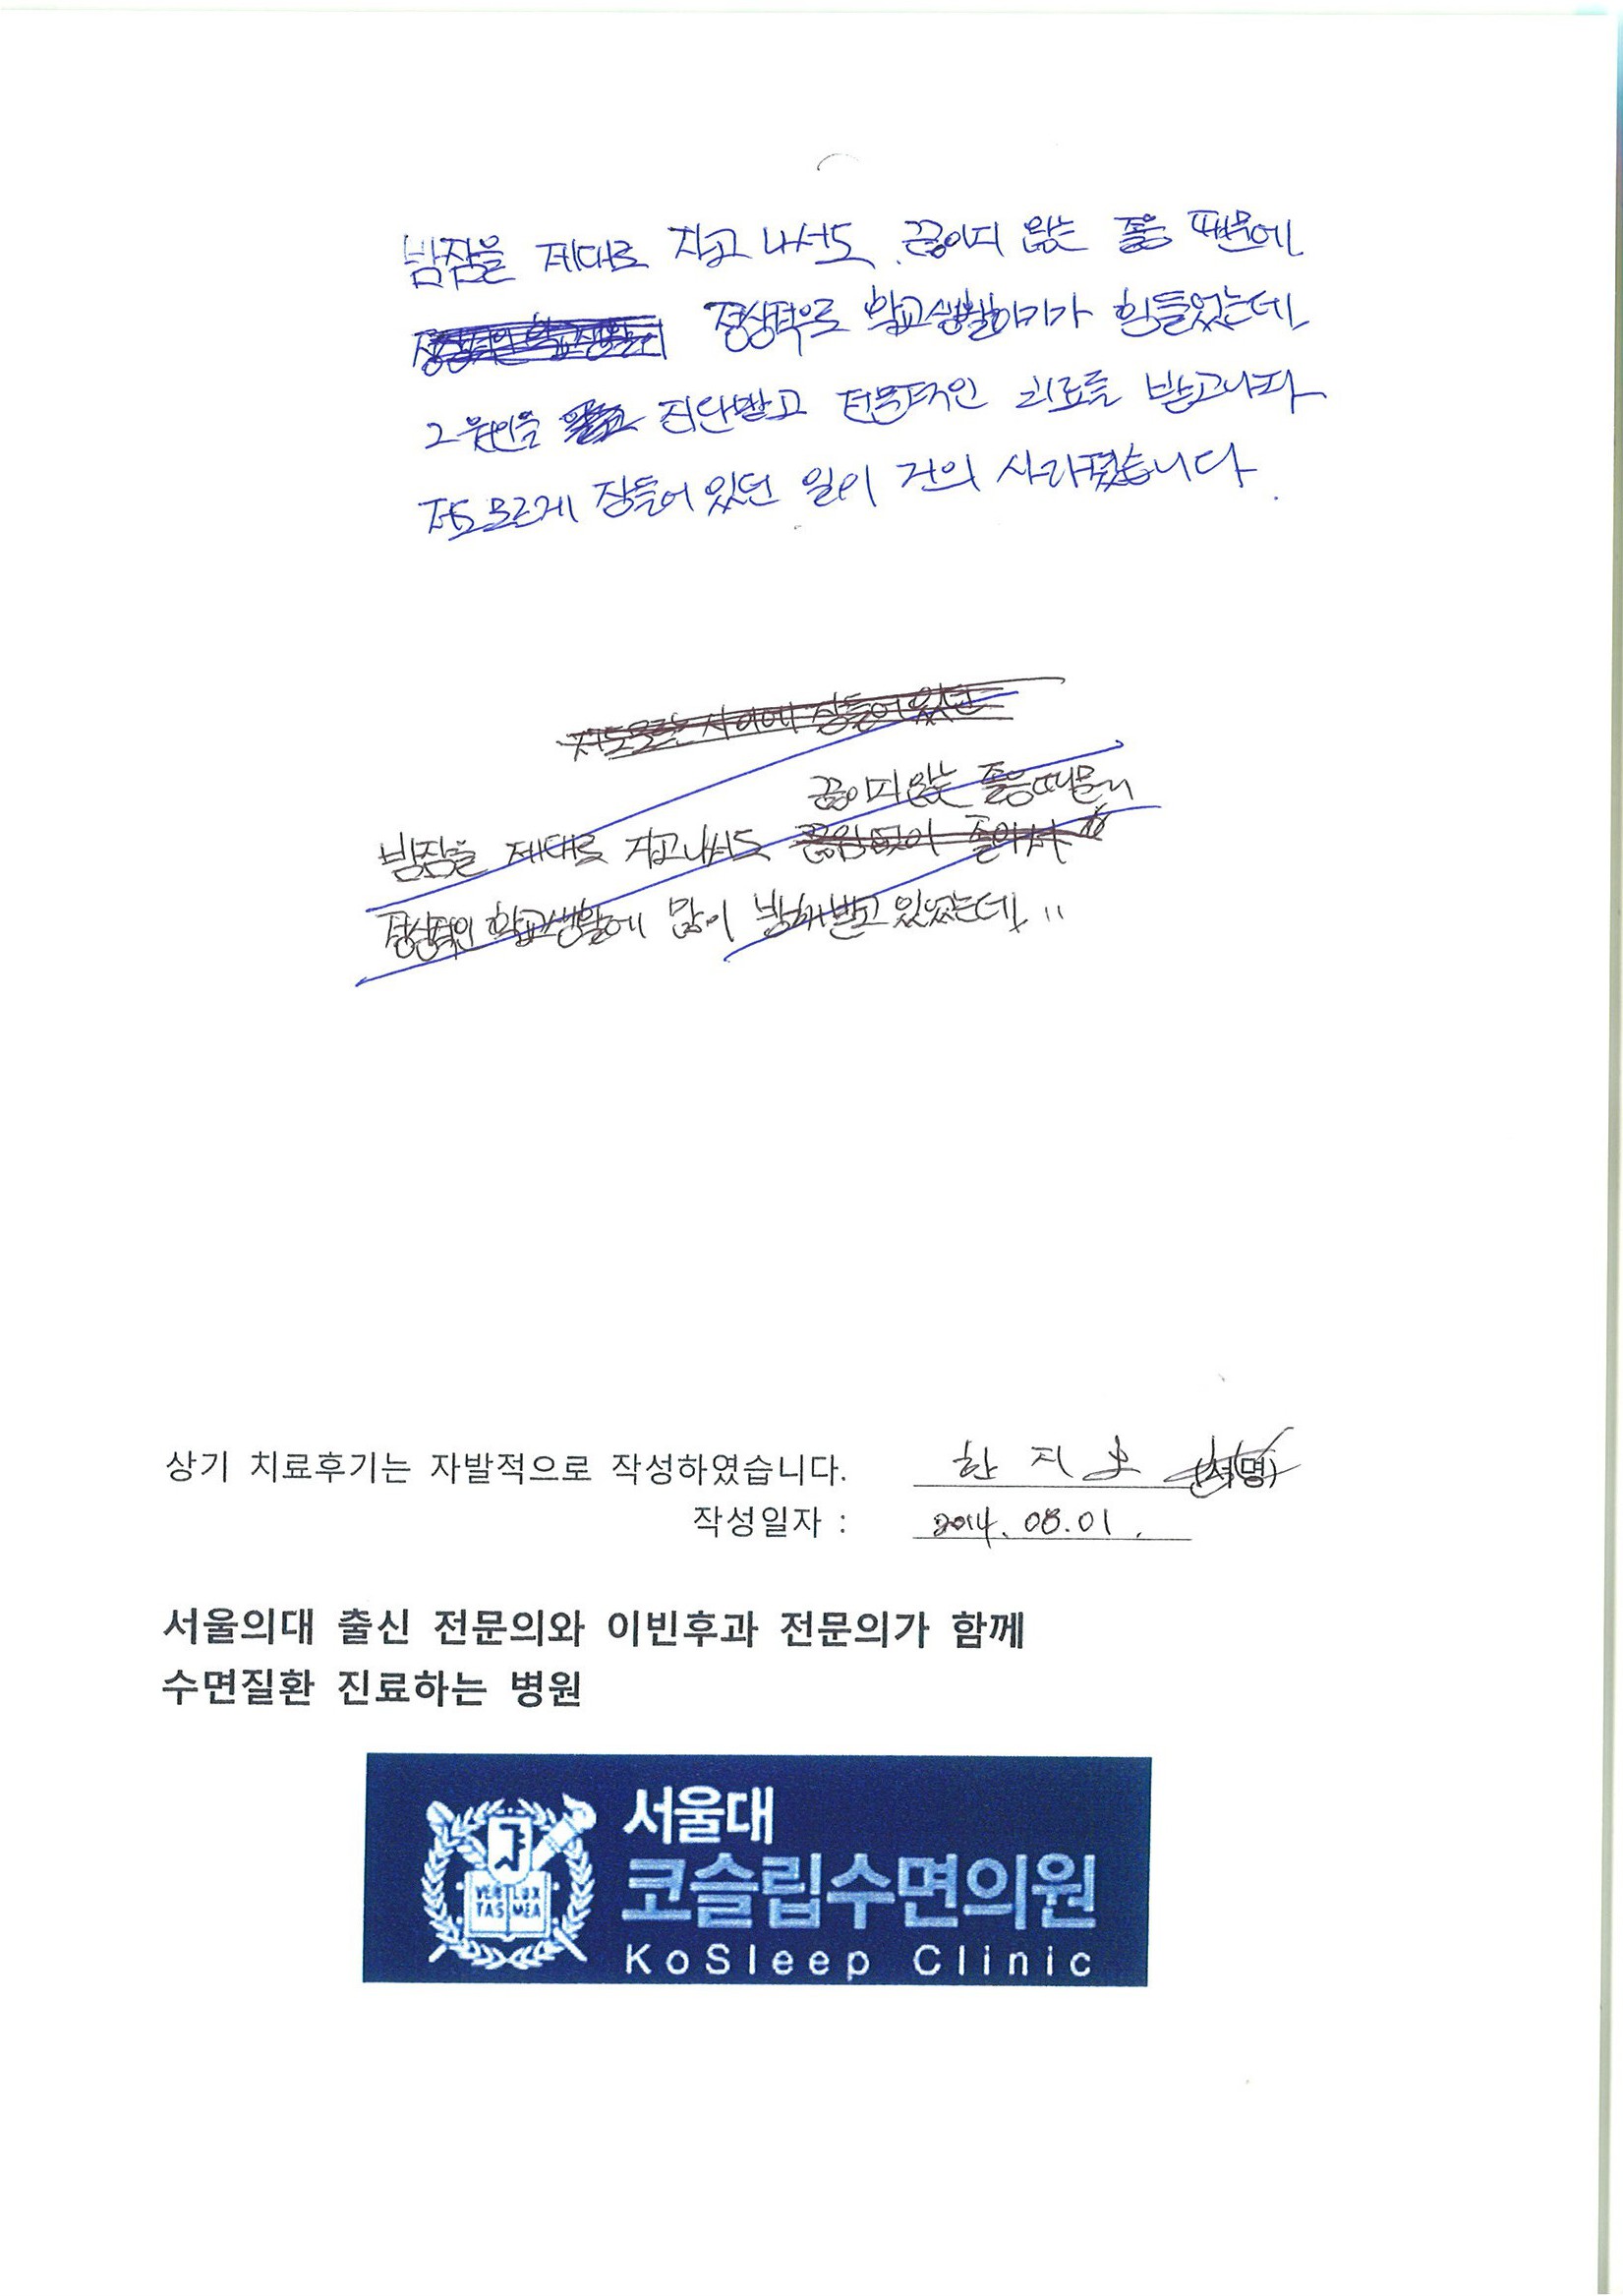 밤잠을 제대로 자고 나서도 끊이지 않는 졸음 때문에
정상적인 학교생활에 정상적으로 학교생활하기가 힘들었는데
그 원인을 진단받고 전문적인 치료를 받고나자
저도 모르게 잠들어 있던 일이 건의 사라졌습니다.
저도 모르는 사이에 잠들어 있었던
끊이지 않는 졸음때문에
밤잠을 제대로 자고나서도 끊임없이 졸아서
정상적인 학교생활에 많이 방해받고 있었는데..
상기 치료후기는 자발적으로 작성하였습니다. 한지 (서명)
작성일자 : 2014. 08. 01.
서울의대 출신 전문의와 이빈후과 전문의가 함께
수면질환 진료하는 병원
VERI LUX
TAS MEA
서울대
코슬립수면의원
KoSleep Clinic